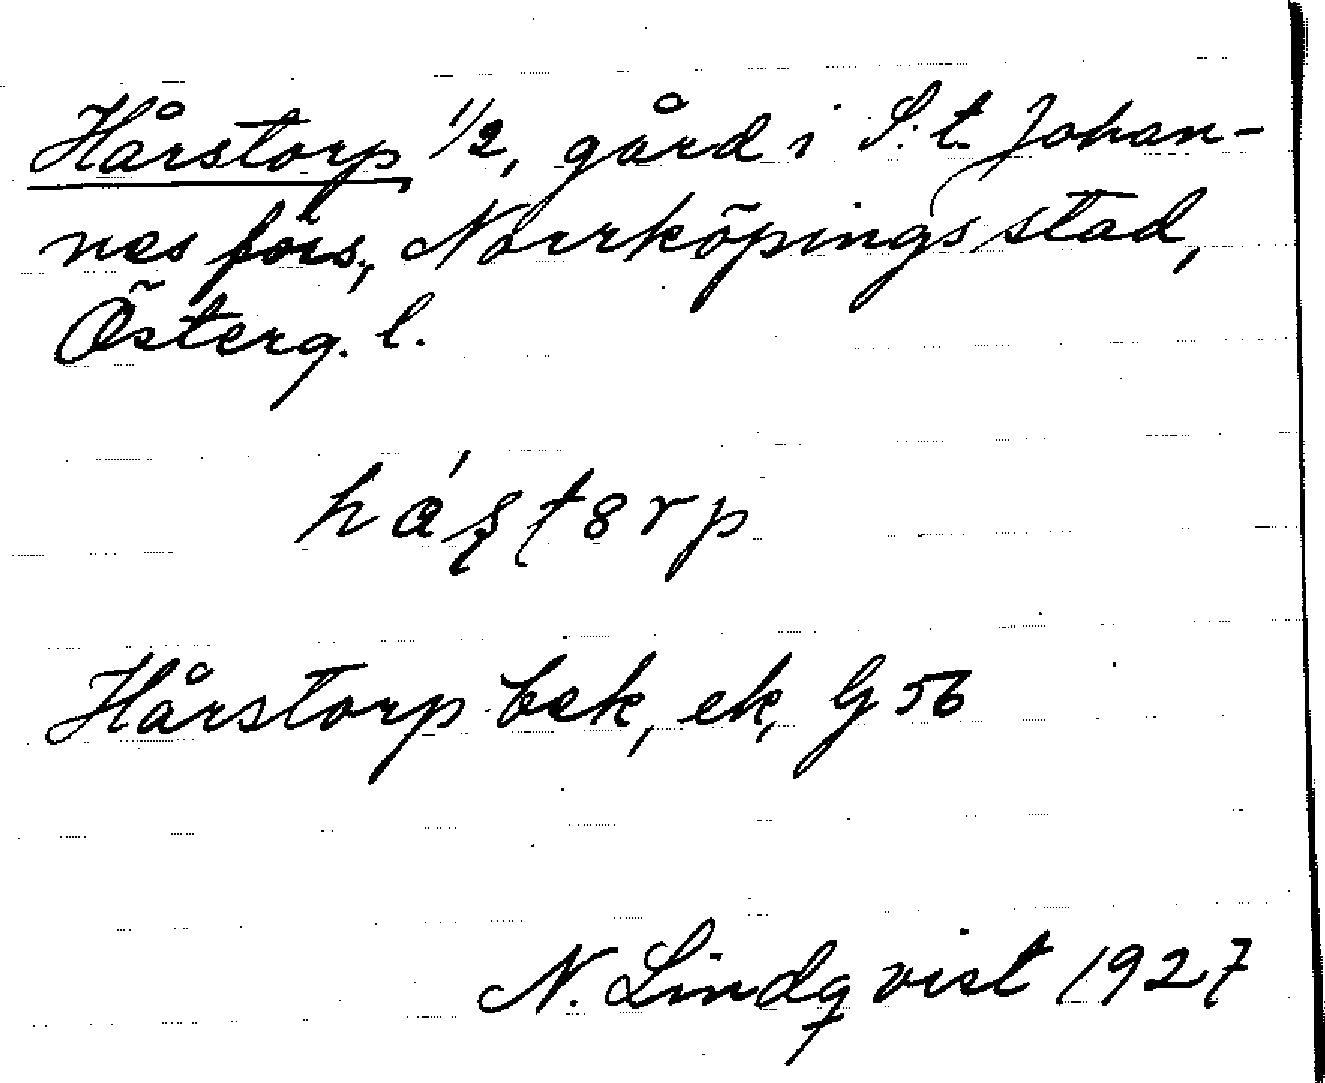 Hårstorp 1/2, gård i S:t. Johan-
nes förs., Norrköpings stad,
Österg. l.
Hårstorp bek, ek, G 56
N. Lindqvist 1927